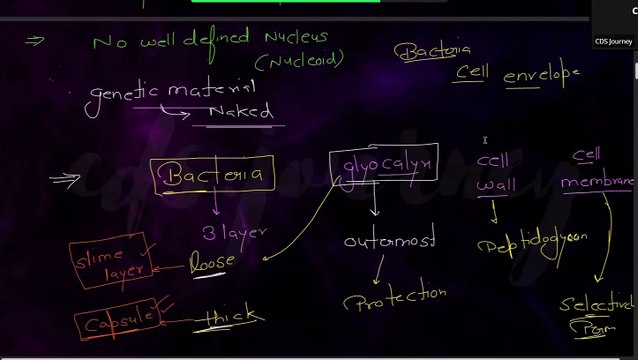 CDS Journey
⇒ No well defined Nucleus
(Nucleoid)
Bacteria
Cell envelope
genetic material
↳ Naked
⇒ Bacteria
glyocalyx
cell wall
cell membrane
3 layer
outermost
Peptidoglycan
slime layer
Loose
Protection
Selective
Perm
Capsule
thick
cdsjourney